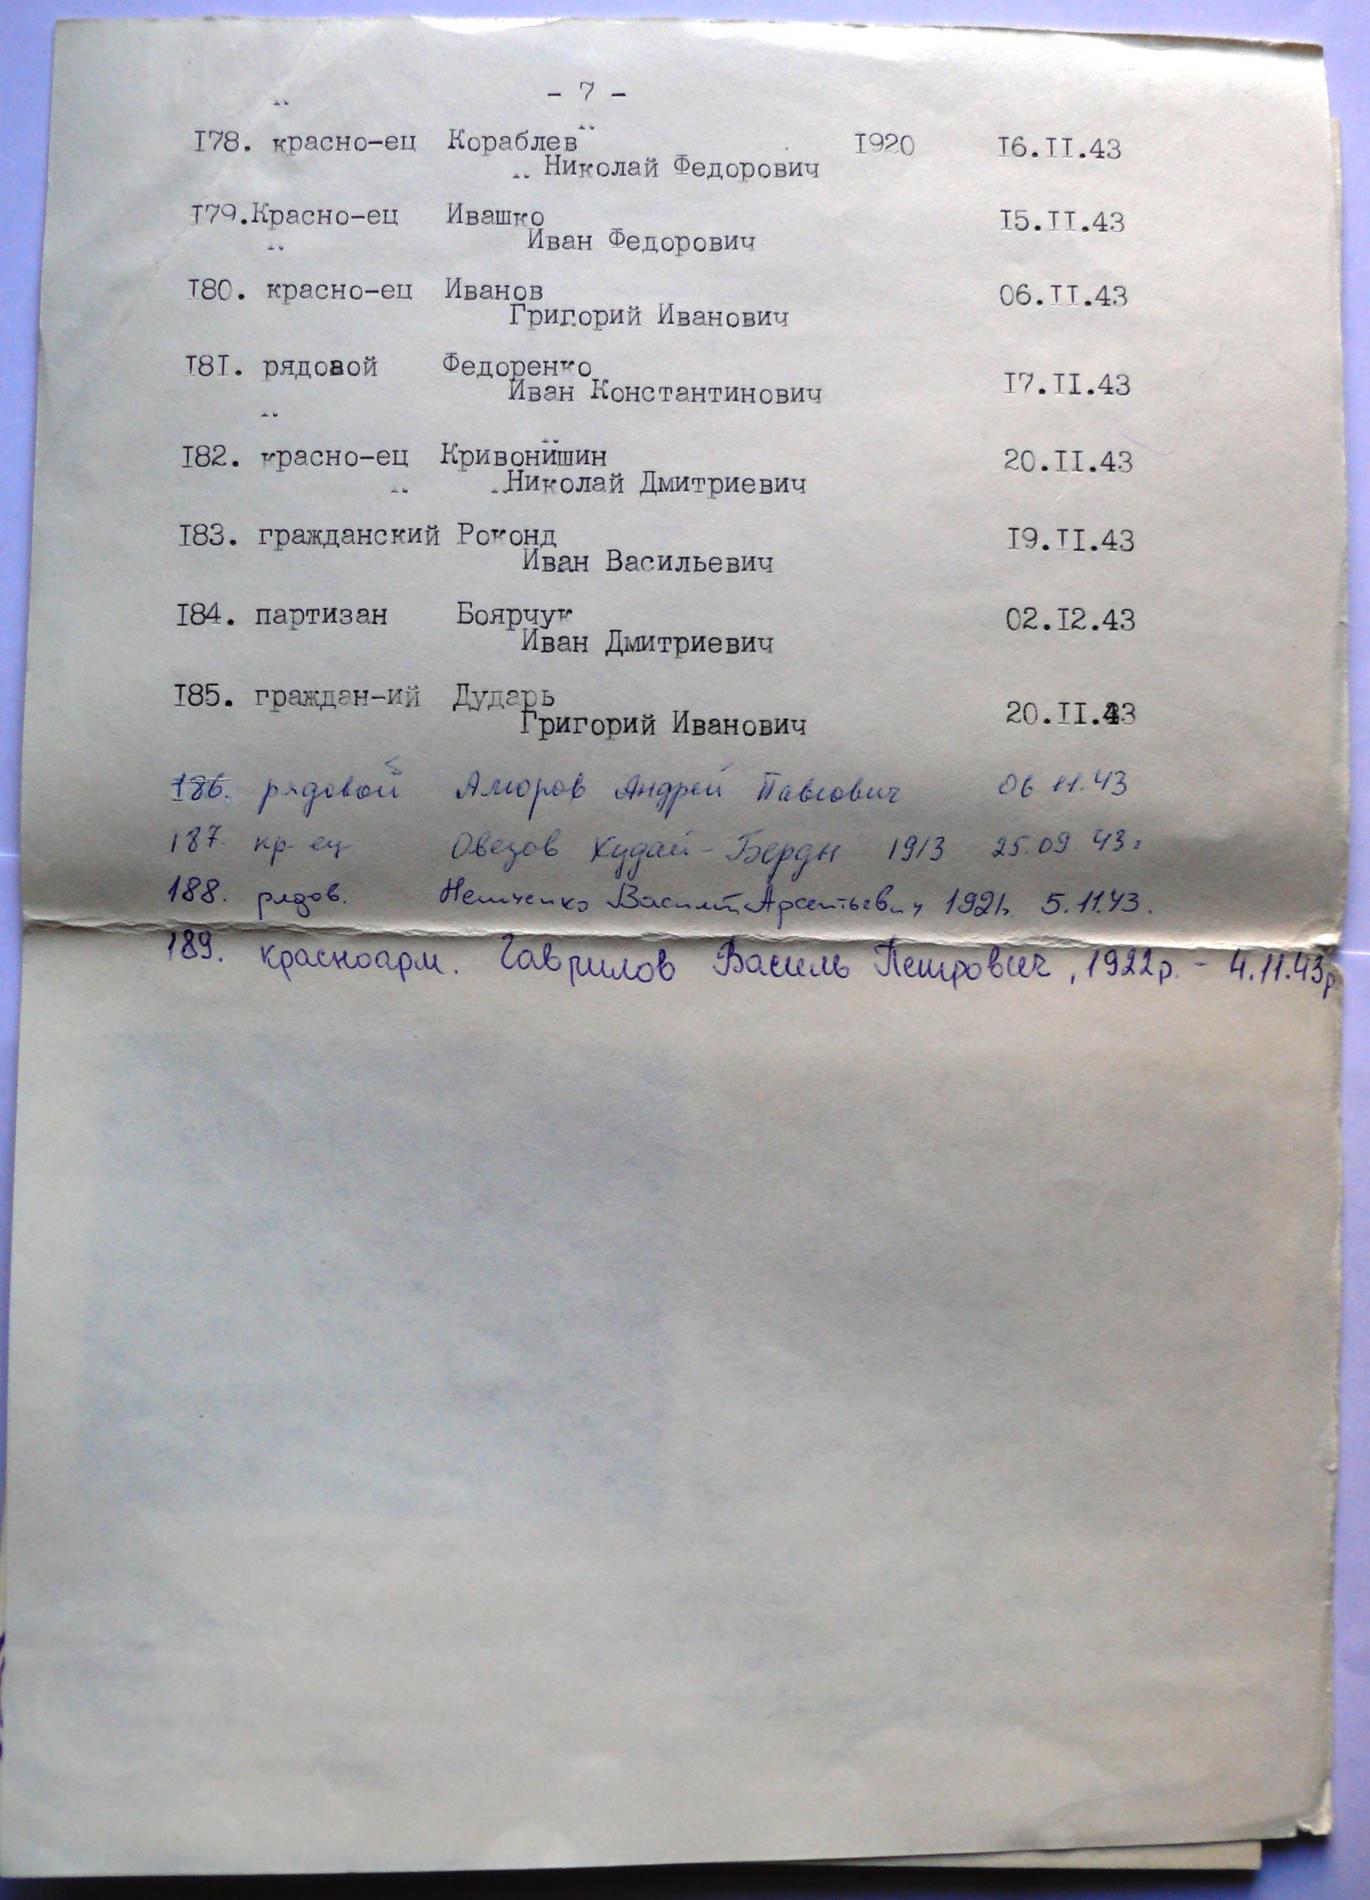 - 7 -
I78. красно-ец Кораблев I920 I6.II.43
Николай Федорович
I79.Красно-ец Ивашко I5.II.43
Иван Федорович
I80. красно-ец Иванов 06.II.43
Григорий Иванович
I8I. рядовой Федоренко
Иван Константинович I7.II.43
I82. красно-ец Кривонишин 20.II.43
Николай Дмитриевич
I83. гражданский Роконд I9.II.43
Иван Васильевич
I84. партизан Боярчук 02.I2.43
Иван Дмитриевич
I85. граждан-ий Дударь
Григорий Иванович 20.II.43
186. рядовой Аморов Андрей Павлович 06 11.43
187. кр-ец Овезов Худай-Берды 1913 25.09 43г
188. рядов. Немченко Василий Арсентьевич 1921г. 5.11.43.
189. красноарм. Гаврилов Василь Петрович, 1922р. - 4.11.43р